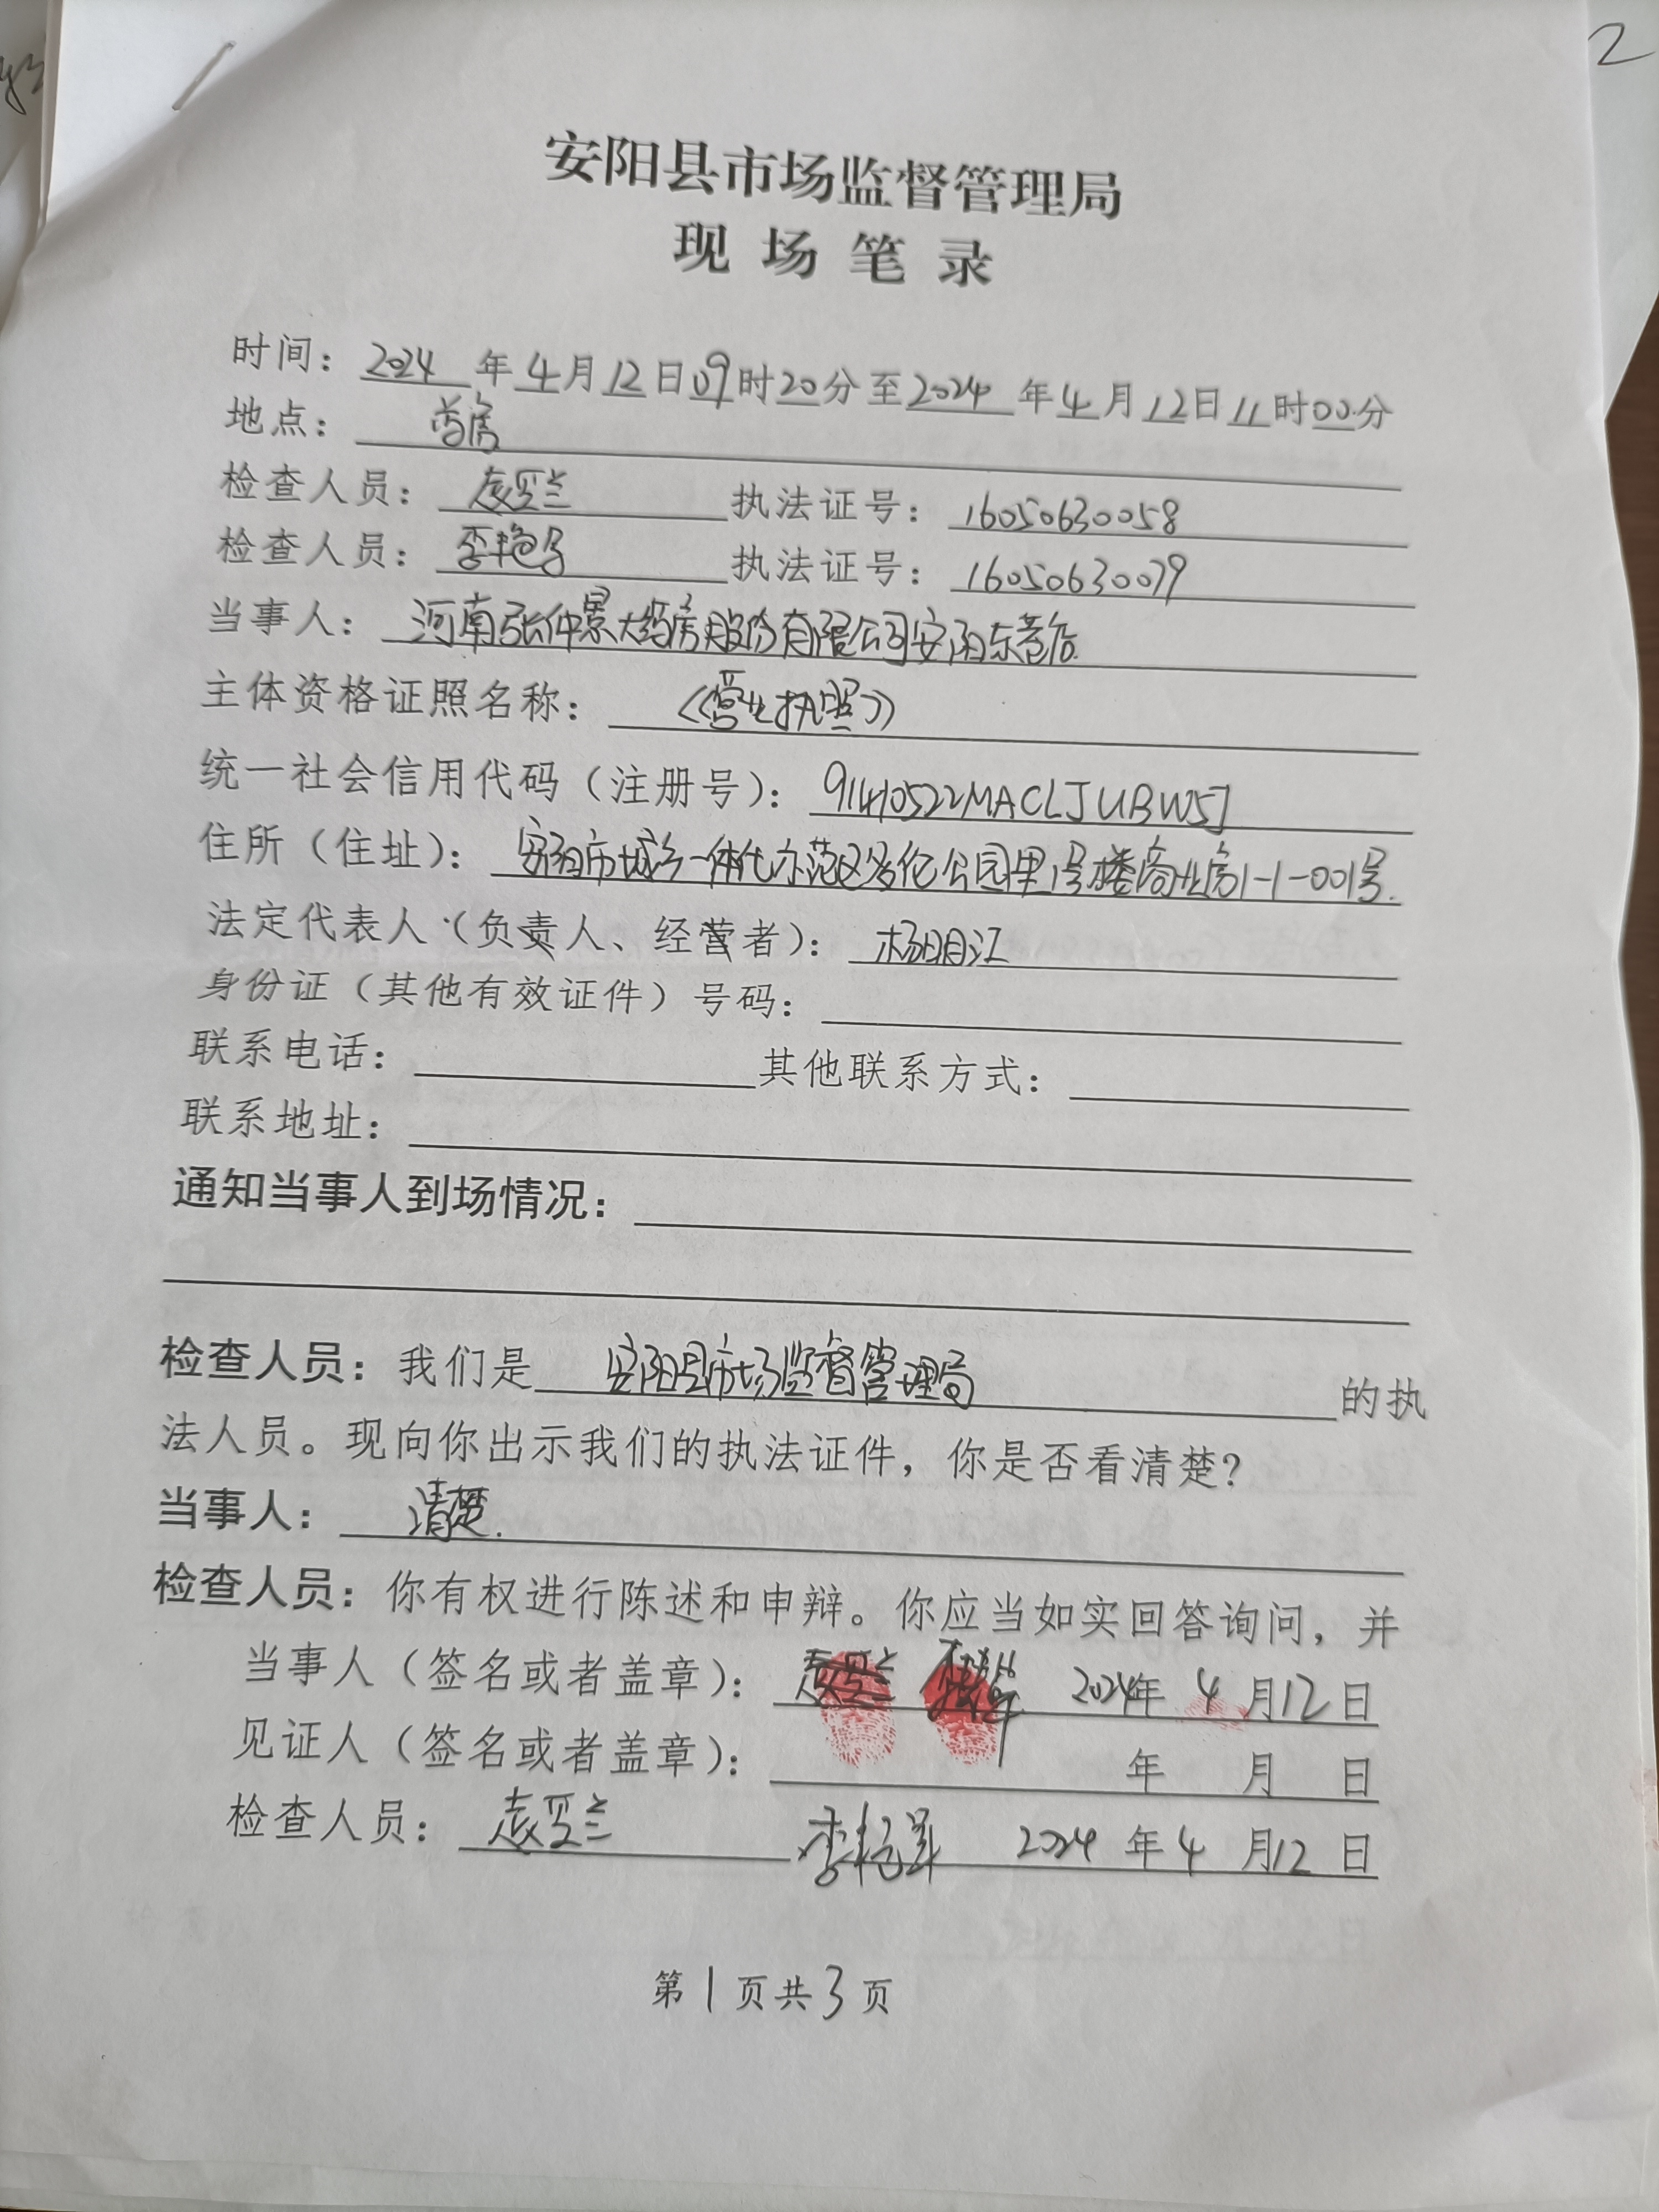 安阳县市场监督管理局
现场笔录
时间：2024年4月12日09时20分至2024年4月12日11时00分
地点：药房
检查人员：执法证号：16050630058
检查人员：李艳 执法证号：16050630079
当事人：河南张仲景大药房股份有限公司安阳东 店
主体资格证照名称：《营业执照》
统一社会信用代码（注册号）：91410522MACLJUBW5J
住所（住址）：安阳市城乡一体化示范区 公园里1号楼商业房1-1-001号.
法定代表人（负责人、经营者）：杨明江
身份证（其他有效证件）号码：
联系电话：其他联系方式：
联系地址：
通知当事人到场情况：
检查人员：我们是安阳县市场监督管理局的执
法人员。现向你出示我们的执法证件，你是否看清楚？
当事人：清楚.
检查人员：你有权进行陈述和申辩。你应当如实回答询问，并
当事人（签名或者盖章）：2024年4月12日
见证人（签名或者盖章）：年 月 日
检查人员：李艳 2024年4月12日
第1页共3页
2